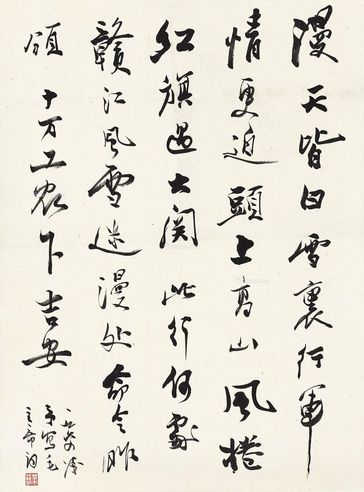 漫天皆白雪裏行軍
情更迫頭上高山風捲
红旗過大関此行何處
贛江風雪迷漫处命令昨
頒十万工农下吉安
写毛
主席词